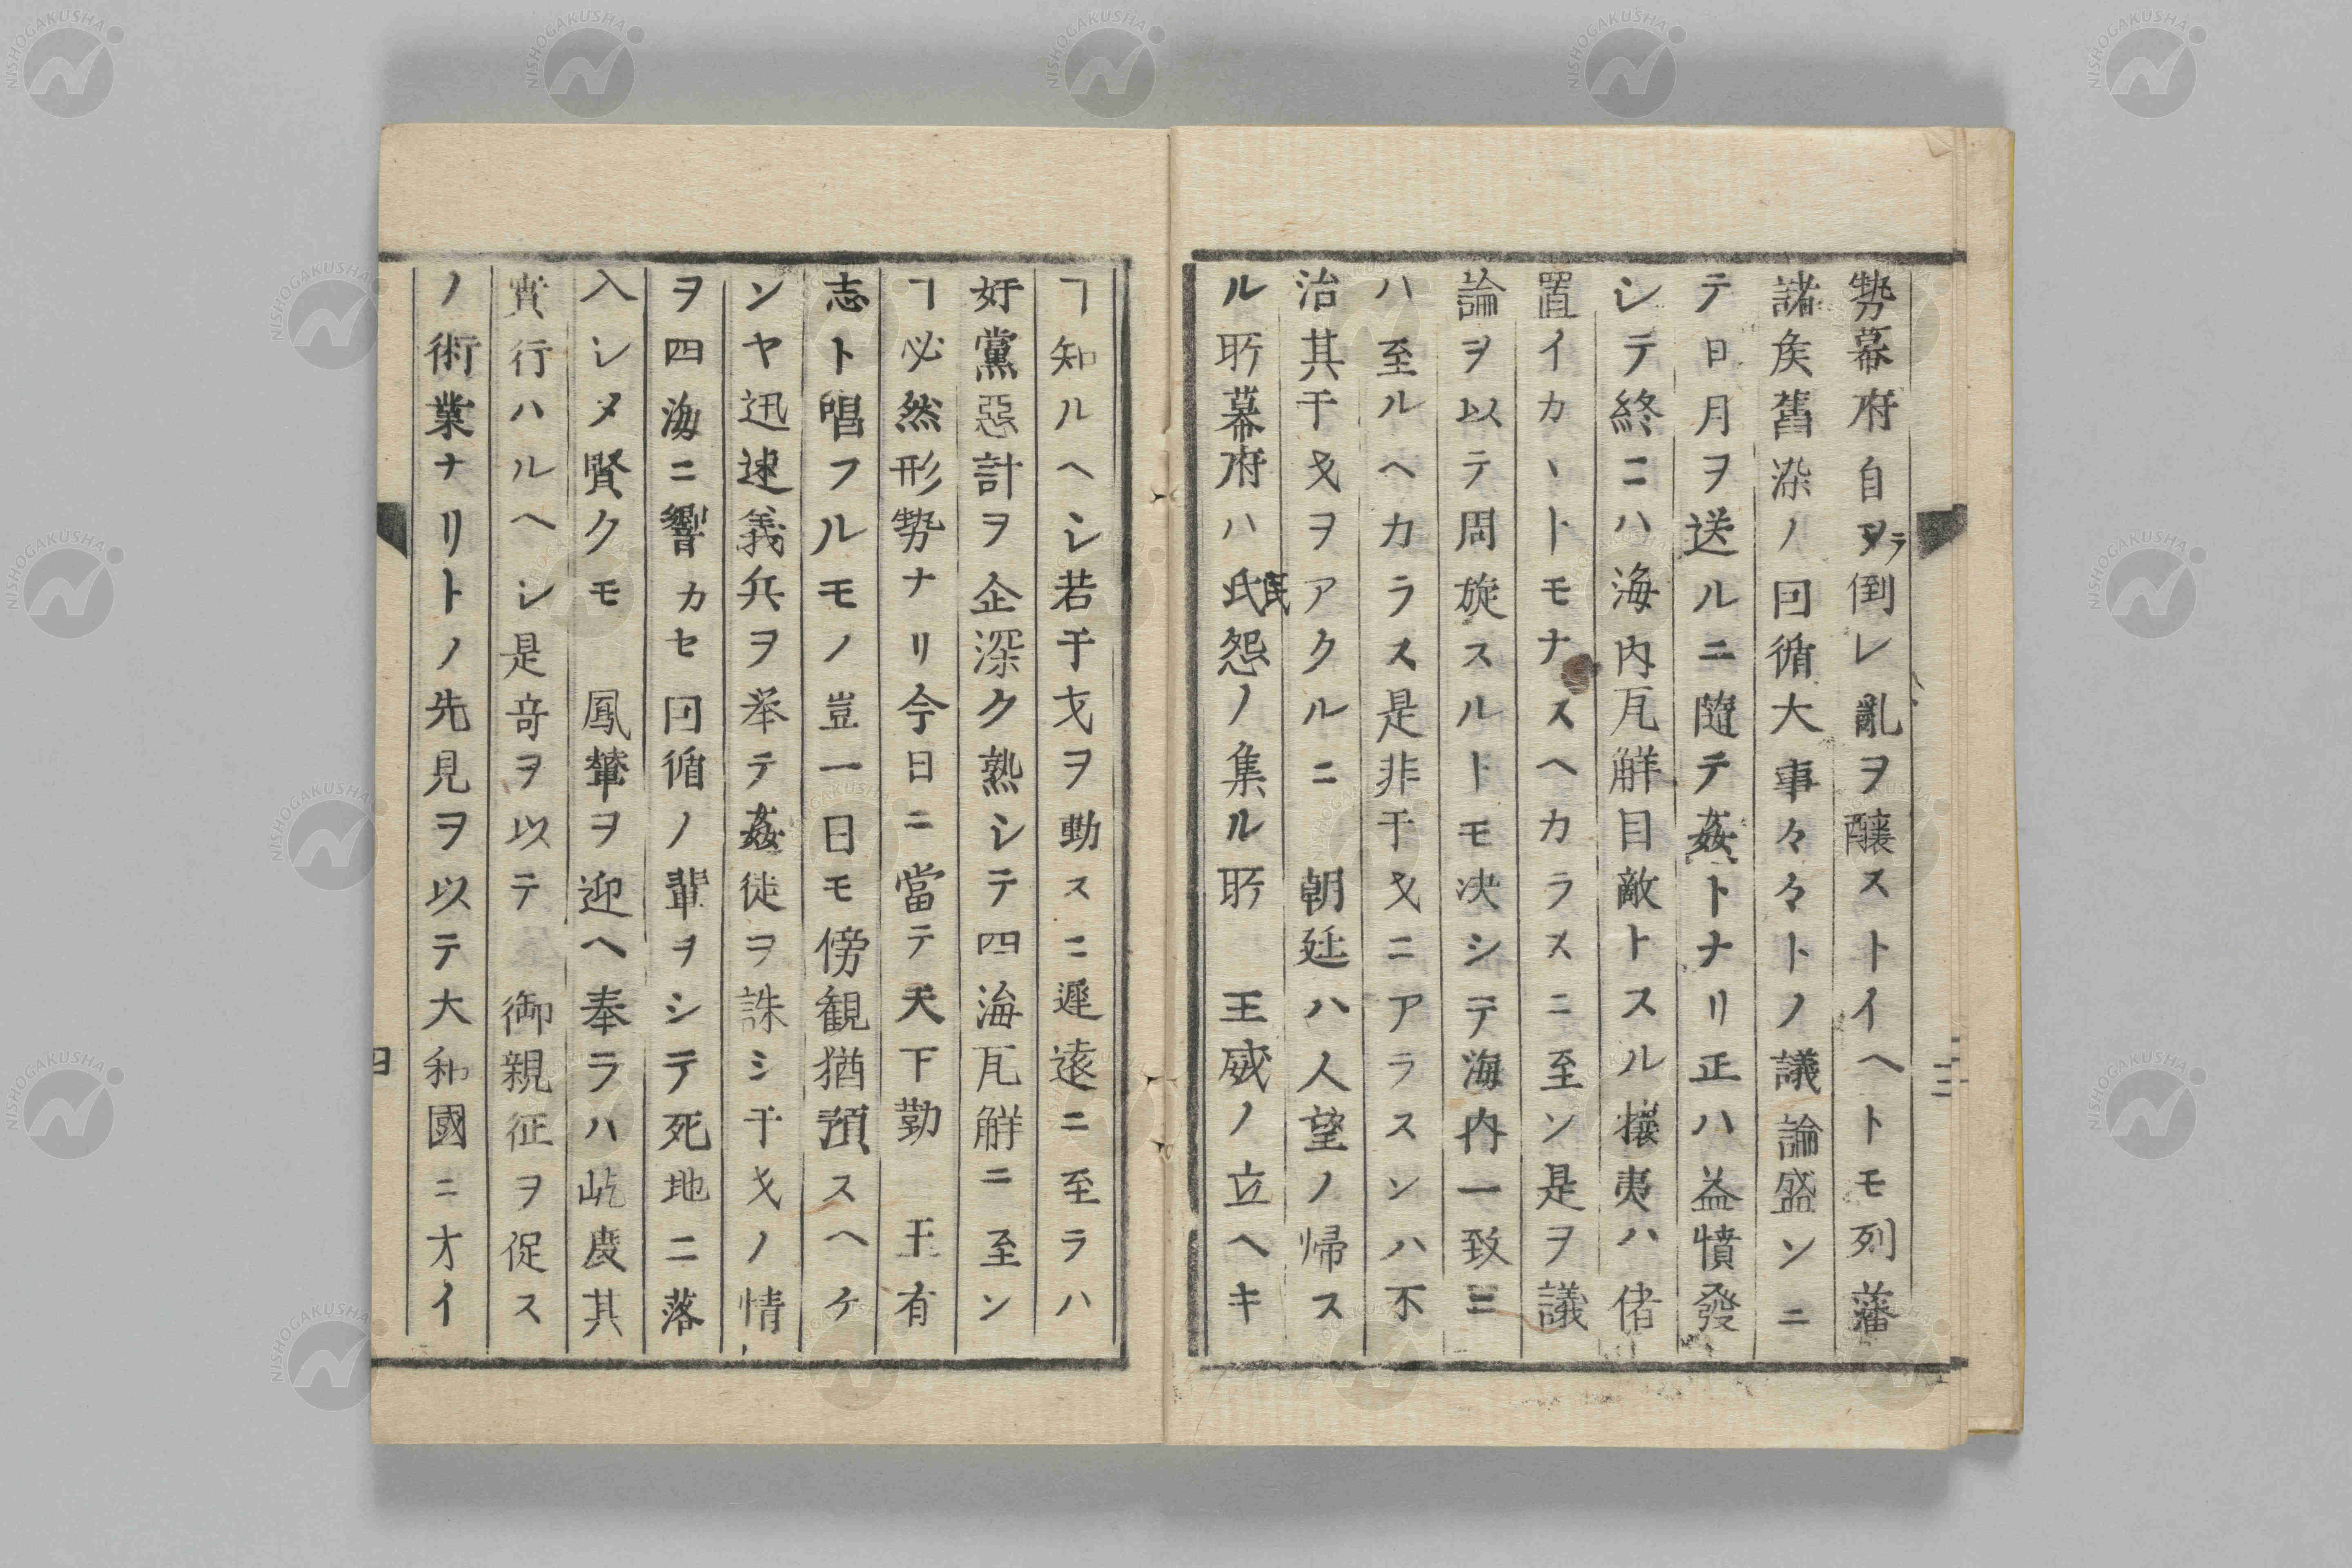 勢幕府自ヲラ倒レ亂ヲ醸ストイヘトモ列藩
諸矦舊染ノ因循大事々々トノ議論盛ンニ
テ日月ヲ送ルニ隨テ姦トナリ正ハ益憤發
シテ終ニハ海内瓦解目敵トスル攘夷ハ偖
置イカヽトモナスヘカラスニ至ン是ヲ議
論ヲ以テ周旋スルトモ决シテ海内一致ニ
ハ至ルヘカラス是非干戈ニアラスンハ不
治其干戈ヲアクルニ 朝廷ハ人望ノ帰ス
ル所幕府ハ氏民怨ノ集ル所 王威ノ立ヘキ
ヿ知ルヘシ若干戈ヲ動スニ遲遠ニ至ラハ
奸黨惡計ヲ企深ク熟シテ四海瓦解ニ至ン
ヿ必然形勢ナリ今日ニ當テ天下勤 王有
志ト唱フルモノ豈一日モ傍観猶預スヘケ
ンヤ迅速義兵ヲ举テ姦徒ヲ誅シ干戈ノ情
ヲ四海ニ響カセ因循ノ輩ヲシテ死地ニ落
入レメ賢クモ 鳳輦ヲ迎ヘ奉ラハ屹度其
實行ハルヘシ是竒ヲ以テ 御親征ヲ促ス
ノ術業ナリトノ先見ヲ以テ大和國ニオイ
三
四
NISHOGAKUSHA